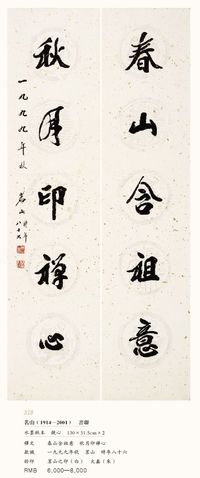 春山含祖意
秋月印禅心
一九九九年秋
茗山 时年八十六
328
茗山（1914—2001） 书联
水墨纸本 镜心 130×31.5cm×2
释文 春山含祖意 秋月印禅心
款识 一九九九年秋 茗山 时年八十六
钤印 茗山之印（白） 大鑫（朱）
RMB 6,000—8,000